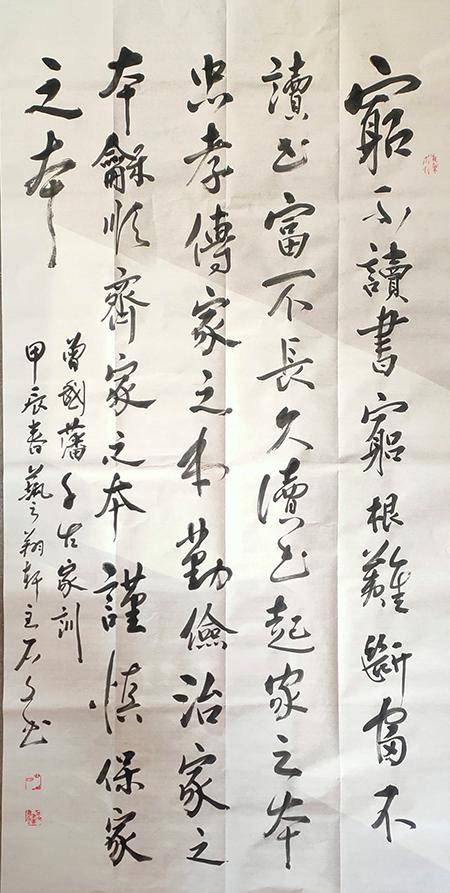 窮不讀書窮根難斷富不
讀书富不長久讀书起家之本
忠孝傳家之本勤儉治家之
本龢順齊家之本謹慎保家
之本
曾國藩千古家訓
甲辰春藝之翔軒主石文书